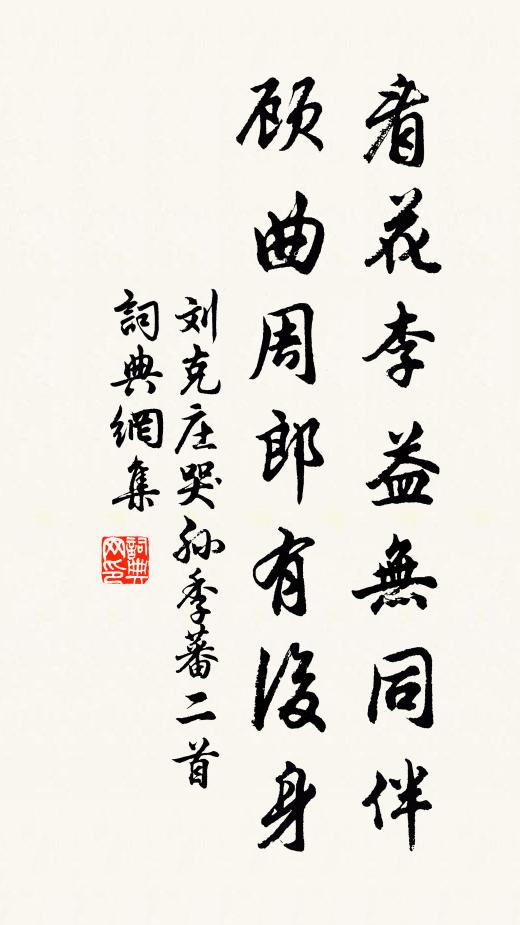 看花李益無同伴
顾曲周郎有後身
刘克庄哭孙季蕃二首
詞典網集
詞典网印